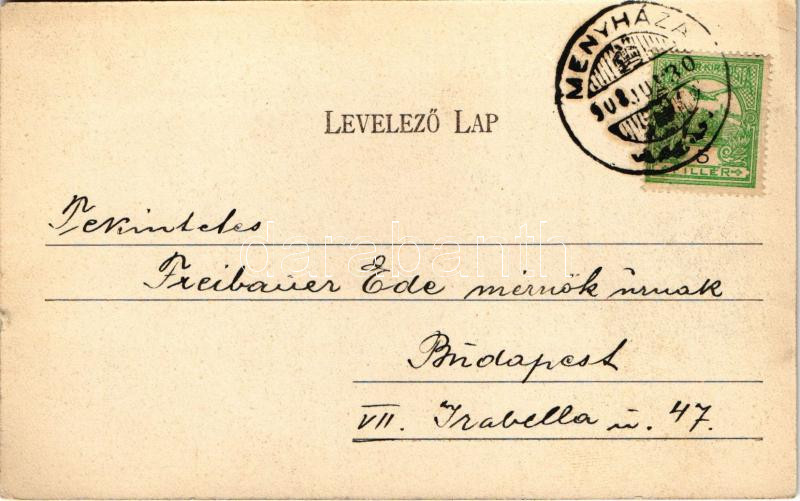 MENYHÁZA
908 JUL 30
5
FILLÉR
LEVELEZŐ LAP
Tekintetes
Freibauer Ede mérnök úrnak
darabanth
Budapest
VII. Izabella u. 47.